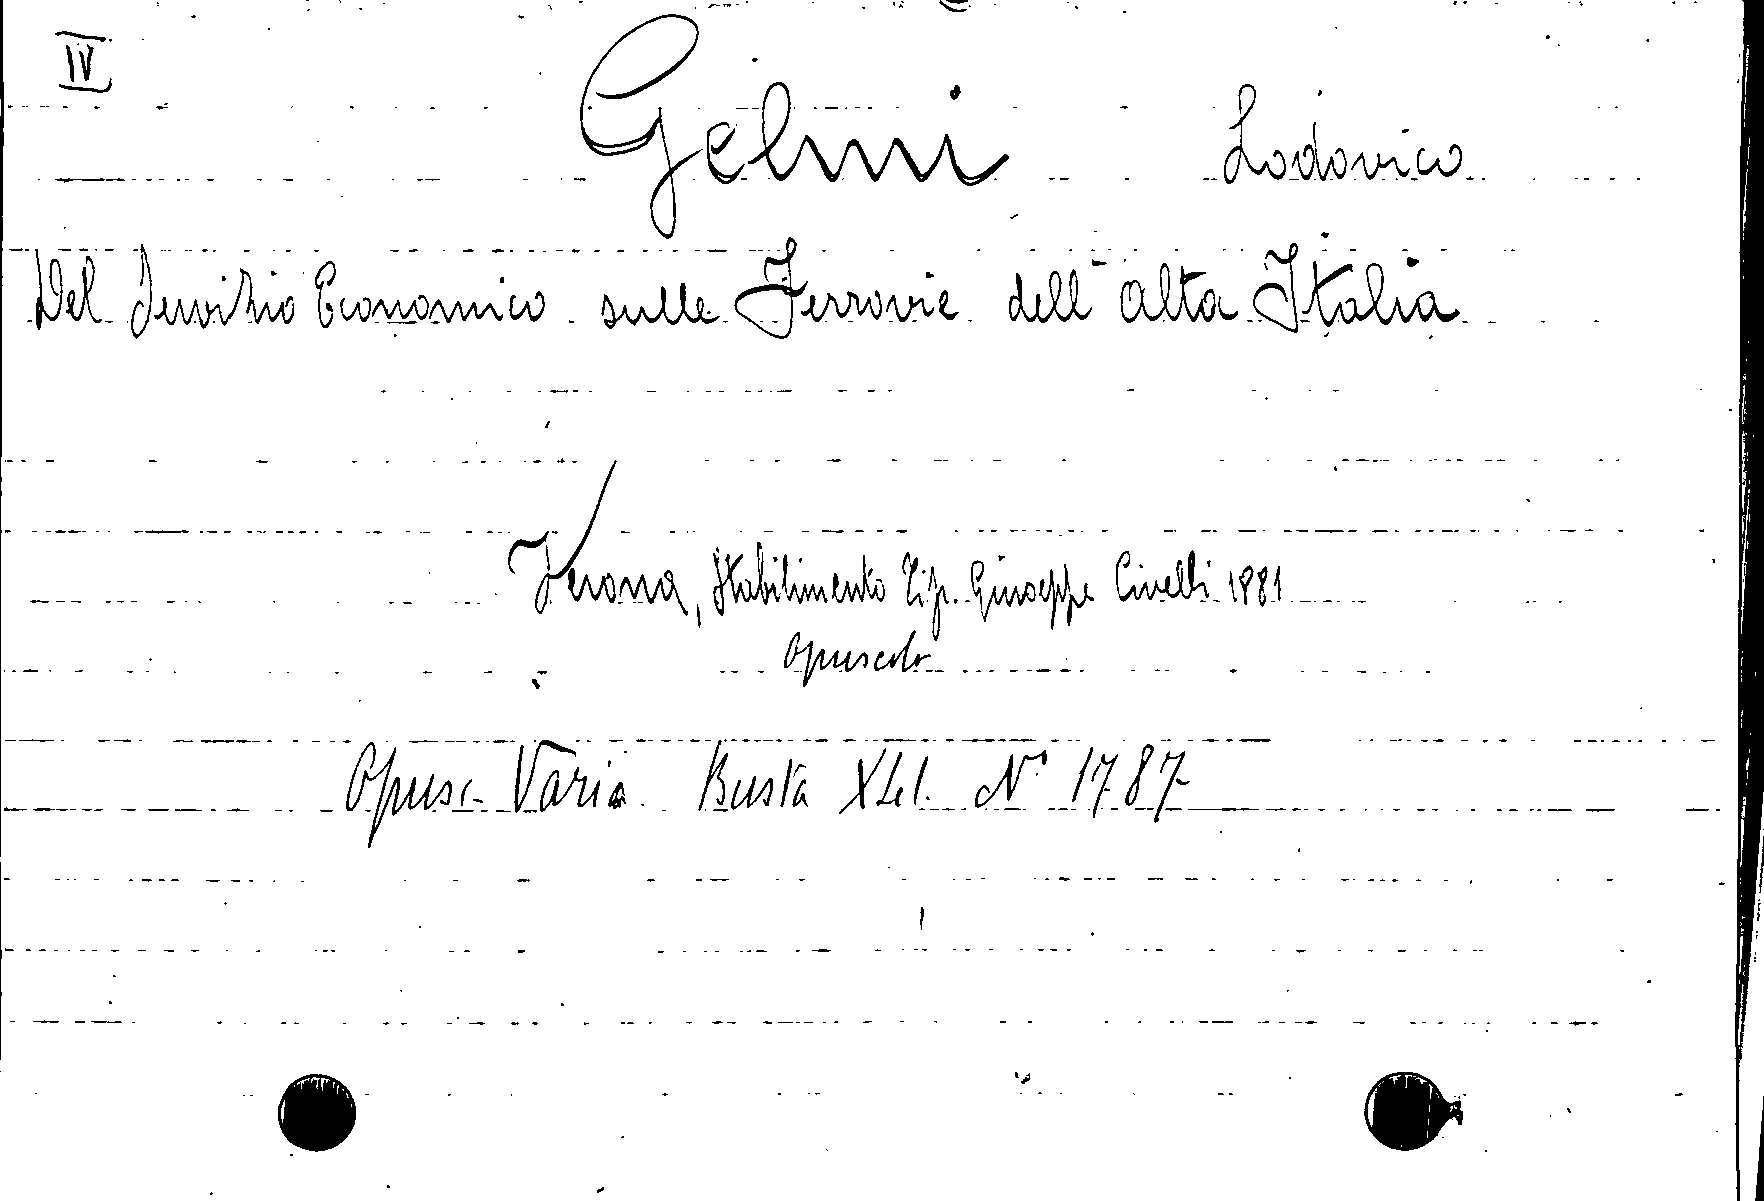 IV
Gelmi Lodovico
Del Servizio Economico sulle Ferrovie dell'alta Italia
Verona, Stabilimento Tip. Giuseppe Civelli 1881
opuscolo
Opusc. Varia Busta N° 1787